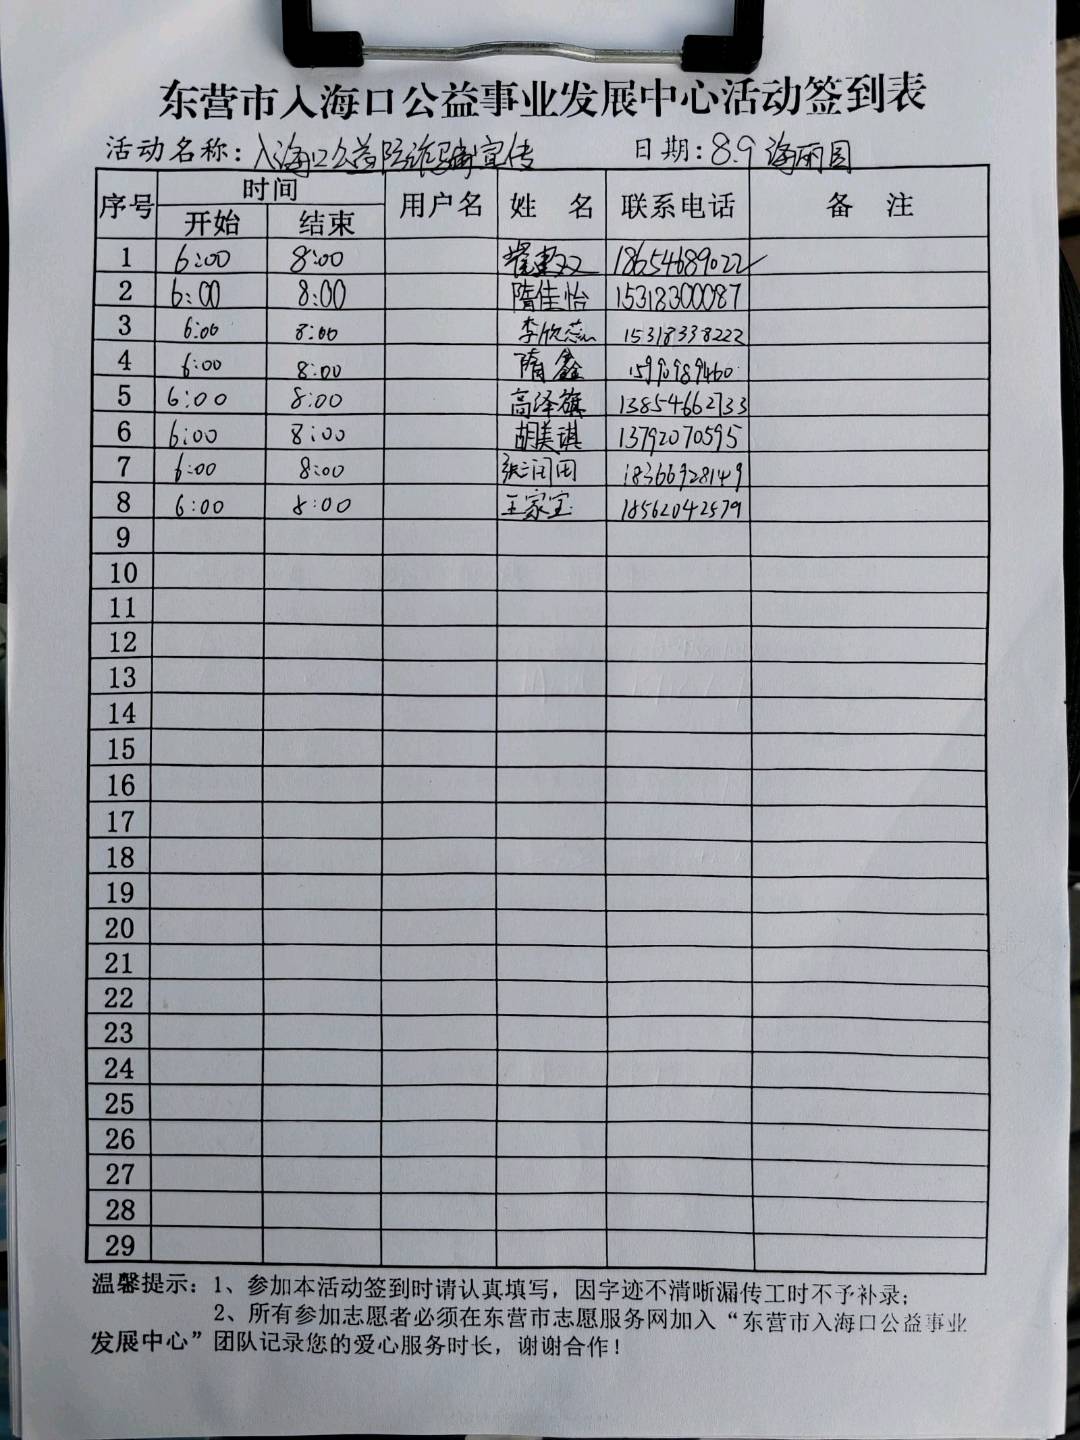 东营市入海口公益事业发展中心活动签到表
活动名称：入海口公益防诈骗宣传 日期：8.9 海丽园
序号 时间 用户名 姓 名 联系电话 备 注
开始 结束
1 6:00 8:00 18654689022
2 6:00 8:00 隋佳怡 15318300087
3 6:00 8:00 李欣蕊 15318338222
4 6:00 8:00 隋鑫 15990989460
5 6:00 8:00 高泽旗 13854662733
6 6:00 8:00 胡美琪 13792070595
7 6:00 8:00 张润田 18366928149
8 6:00 8:00 王家宝 18562042579
9
10
11
12
13
14
15
16
17
18
19
20
21
22
23
24
25
26
27
28
29
温馨提示：1、参加本活动签到时请认真填写，因字迹不清晰漏传工时不予补录；
2、所有参加志愿者必须在东营市志愿服务网加入“东营市入海口公益事业
发展中心”团队记录您的爱心服务时长，谢谢合作！